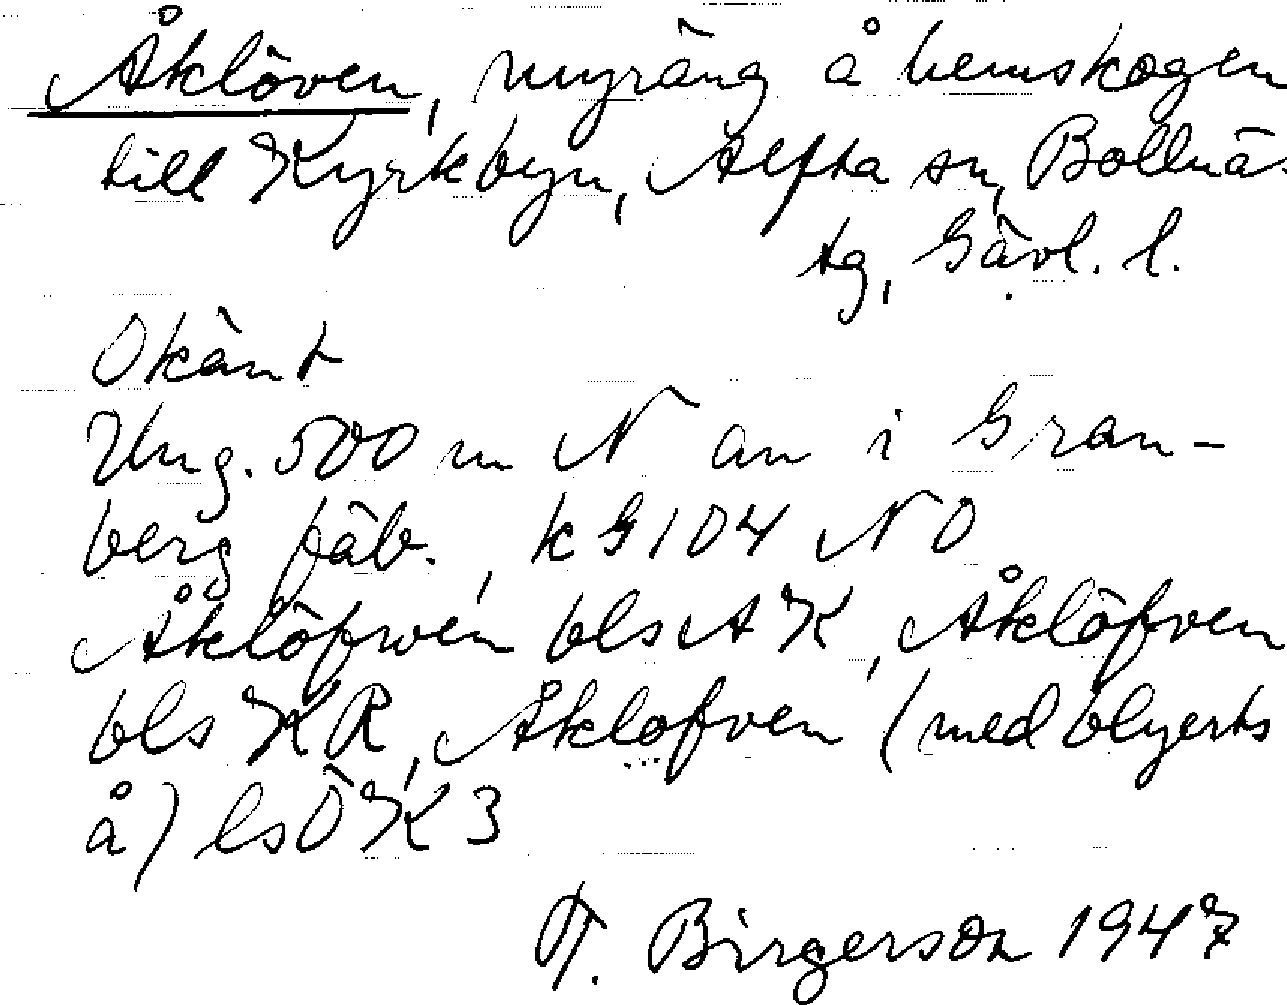 Åklöven, myräng å hemskogen
till Kyrkbyn, Alfta sn, Bollnäs
tg, Gävl. l.
Okänt
Ung. 500 m N an i Gran-
berg fäb., kG104 NO
Åklöfwen bls AK, Åklöfven
bls KR, Åklofven (med blyerts
å) ls ÖK 3
Birgerson 1947